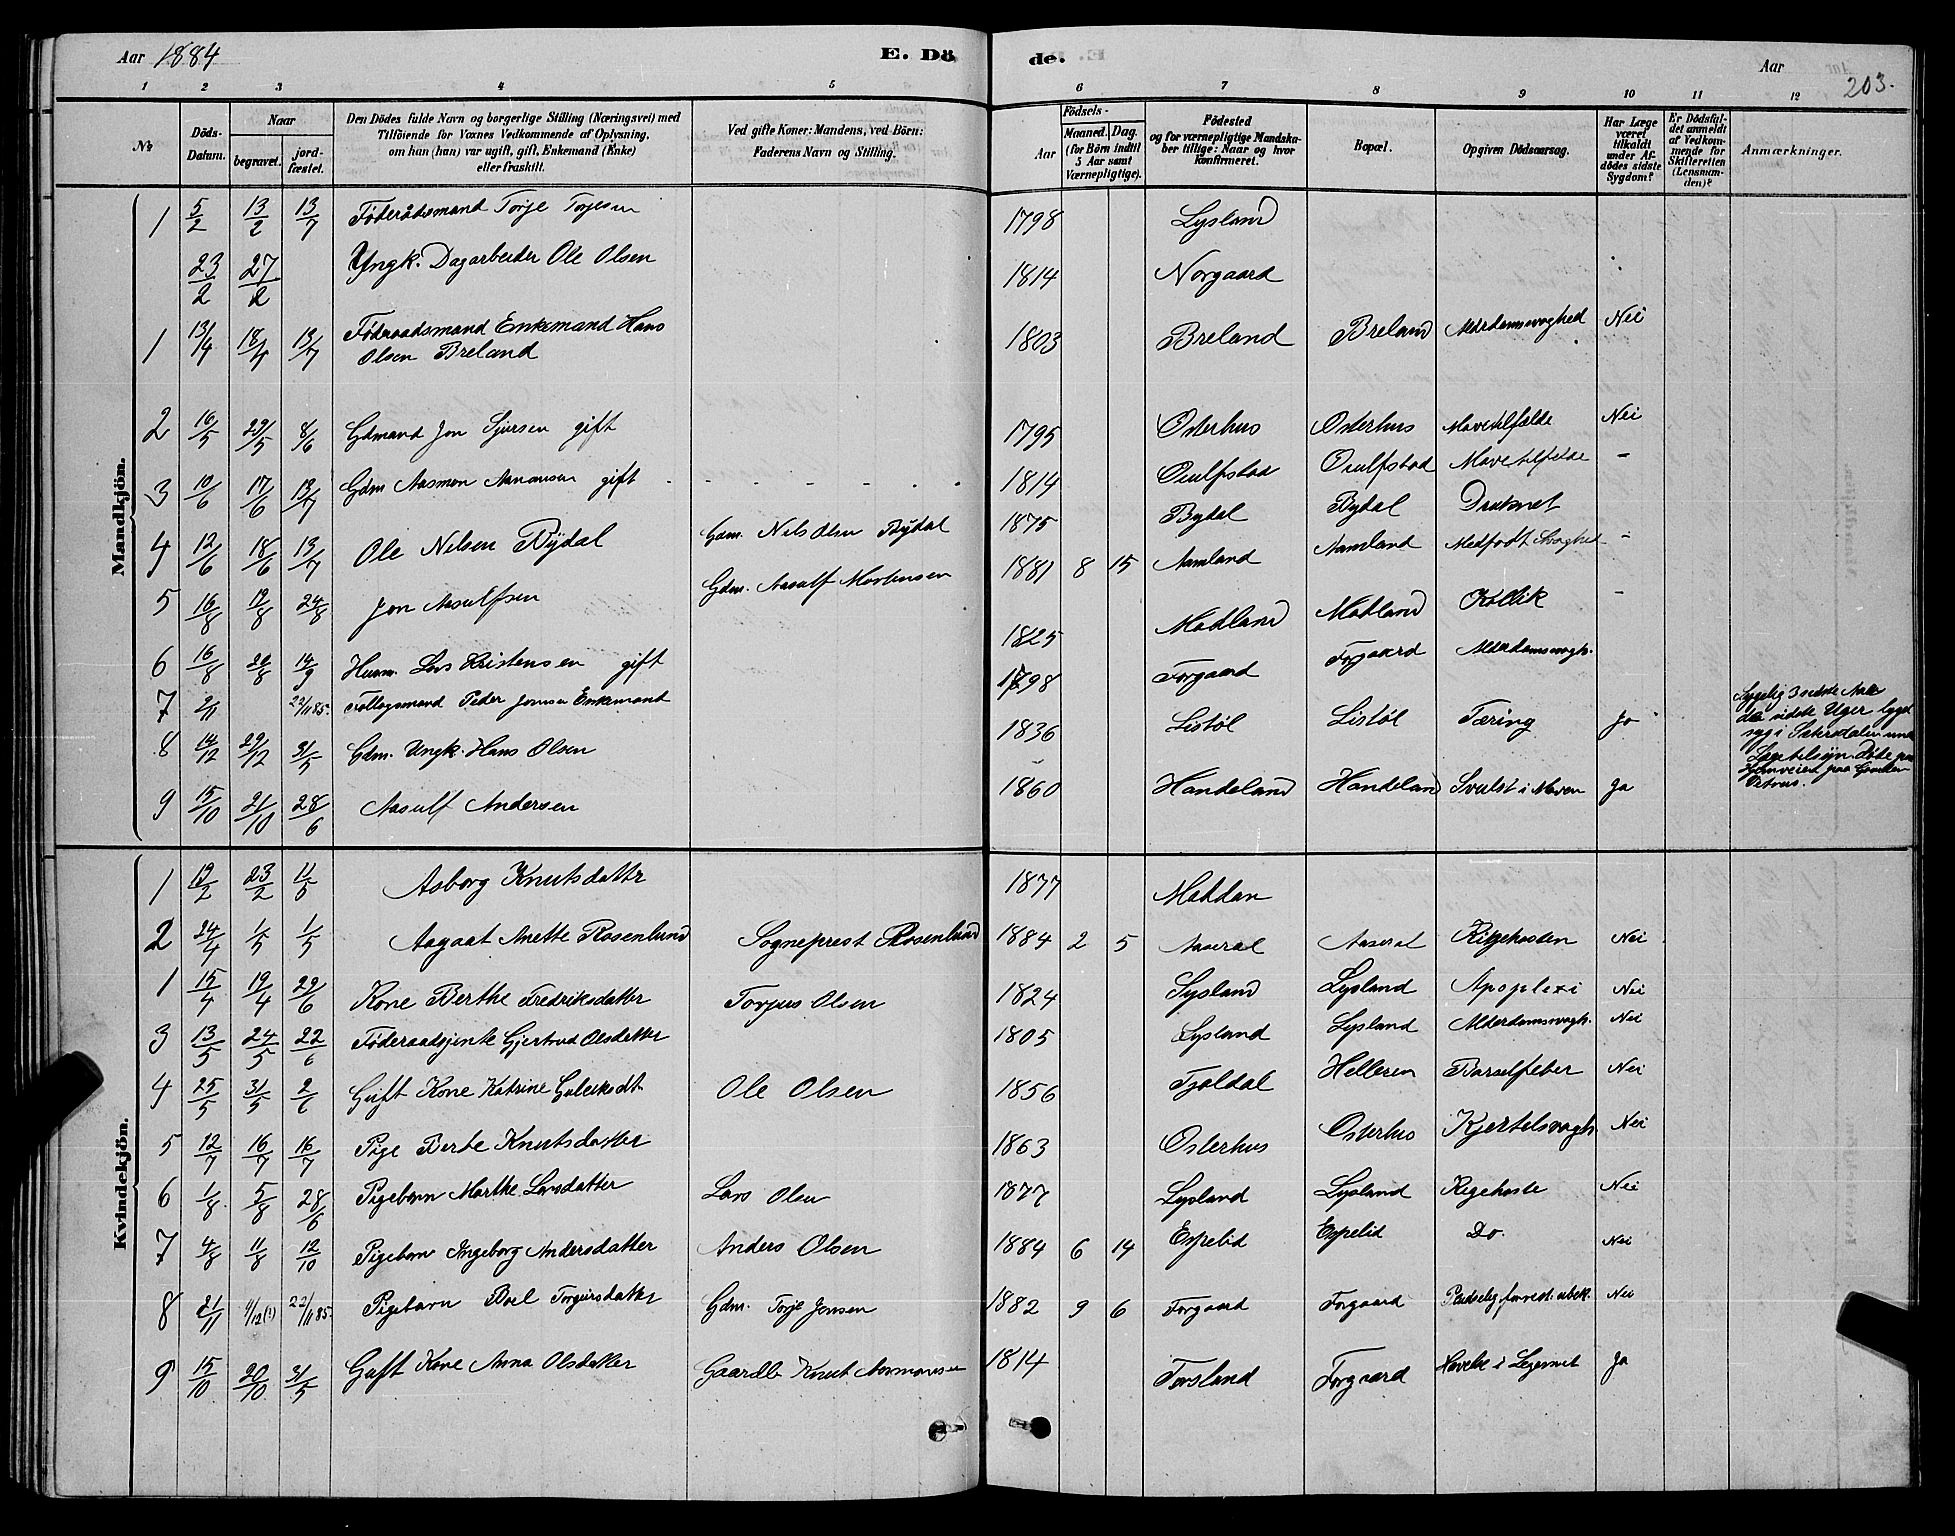 Aar 1884 E. Dö de. Aar 203.
1 2 3 4 5 6 7 8 9 10 11 12
No
Döds-Datum.
Naar
begravet.
jordfæstet.
Den Dödes fulde Navn og borgerlige Stilling (Næringsvei) med
Tilföiende for Voxnes Vedkommende af Oplysning,
om han (hun) var ugift, gift, Enkemand (Enke)
eller fraskilt.
Ved gifte Koner: Mandens, ved Börn:
Faderens Navn og Stilling.
Födsels-
Aar
Maaned.
Dag.
(for Börn indtil
5 Aar samt
Værnepligtige).
Födested
og for værnepligtige Mandska-
ber tillige: Naar og hvor
Konfirmeret.
Bopæl.
Opgiven Dödsaarsag.
Har Læge
været
tilkaldt
under Af-
dödes sidste
Sygdom?
Er Dödsfal-
det anmeldt
af Vedkom-
mende for
Skifteretten
(Lensman-
den)?
Anmærkninger.
Mandkjön.
1 5/2 13/2 13/7 Föderådsmand Torje Torjesen 1798 Lysland
23/2 27/2 Yngk. Dagarbeider Ole Olsen 1814 Norgaard
1 13/4 18/4 13/7 Föderaadsmand Enkemand Hans
Olsen Breland 1803 Breland Breland Alderdomssvaghed Nei
2 16/5 29/5 8/6 Gdmand Jon Sjursen gift 1795 Osterhus Osterhus Mavetilfælde Nei
3 10/6 17/6 13/7 Gdm Aasmon Aanonsen gift 1814 Oiulfstad Oiulfstad Mavetilfelde -
4 12/6 18/6 13/7 Ole Nilsen Bydal Gdm. Nils Olsen Bydal 1875 Bydal Bydal Druknet
5 16/8 19/8 24/8 Jon Aasulfsen Gdm. Aasulf Mortensen 1881 8 15 Aamland Aamland Medfødt Svaghed -
6 16/8 20/8 14/9 Husm. Lars Kristensen gift 1825 Modland Modland Kollik -
7 2/11 22/11 85. Follogsmand Peder Jonsen Enkemand 1798 Forgaard Forgaard Alderdomssvagh.
8 14/12 29/12 31/5 Gdm. Ungk. Hans Olsen 1836 Listöl Listöl Tæring Ja
Sygelig 3 sidste Aar
de sidste Uger
syg i Sætersdalen
9 15/10 21/10 28/6 Aasulf Andersen 1860 Handeland Handeland Svulst i Maven Ja
Kvindekjön.
1 19/2 23/2 11/5 Asborg Knutsdatter 1877
2 24/4 1/5 1/5 Aagaat Anette Rosenlund Sogneprest Rosenlund 1884 2 5 Aaseral Aaseral Kighosten Nei
1 15/4 19/4 29/6 Kone Berthe Fredriksdatter Torjus Olsen 1824 Lysland Lysland Apoplexi Nei
3 13/5 24/5 22/6 Föderaadsjente Gjertrud Olsdatter 1805 Lysland Lysland Alderdomssvagh. Nei
4 25/5 31/5 2/6 Gift Kone Katrine Ole Olsen 1856 Tjoldal Helleren Barselfeber Nei
5 12/7 16/7 16/7 Pige Berte Knutsdatter 1863 Osterhus Osterhus Kjertelsvagh. Nei
6 1/8 5/8 28/6 Pigebarn Marthe Larsdatter Lars Olsen 1877 Lysland Lysland Kigehoste Nei
7 4/8 11/8 12/10 Pigebarn Ingeborg Andersdatter Anders Olsen 1884 6 14 Espelid Espelid Do. Nei
8 21/11 4/12(?) 22/11 85. Pigebarn Boel Torjusdatter Gdm. Torje Jonsen 1882 9 6 Forgaard Forgaard Nei
9 15/10 20/10 31/5 Gift Kone Anna Olsdatter Gaardb. Knut Aasmonsen 1814 Forsland Forgaard Hævelse i Legemet Ja